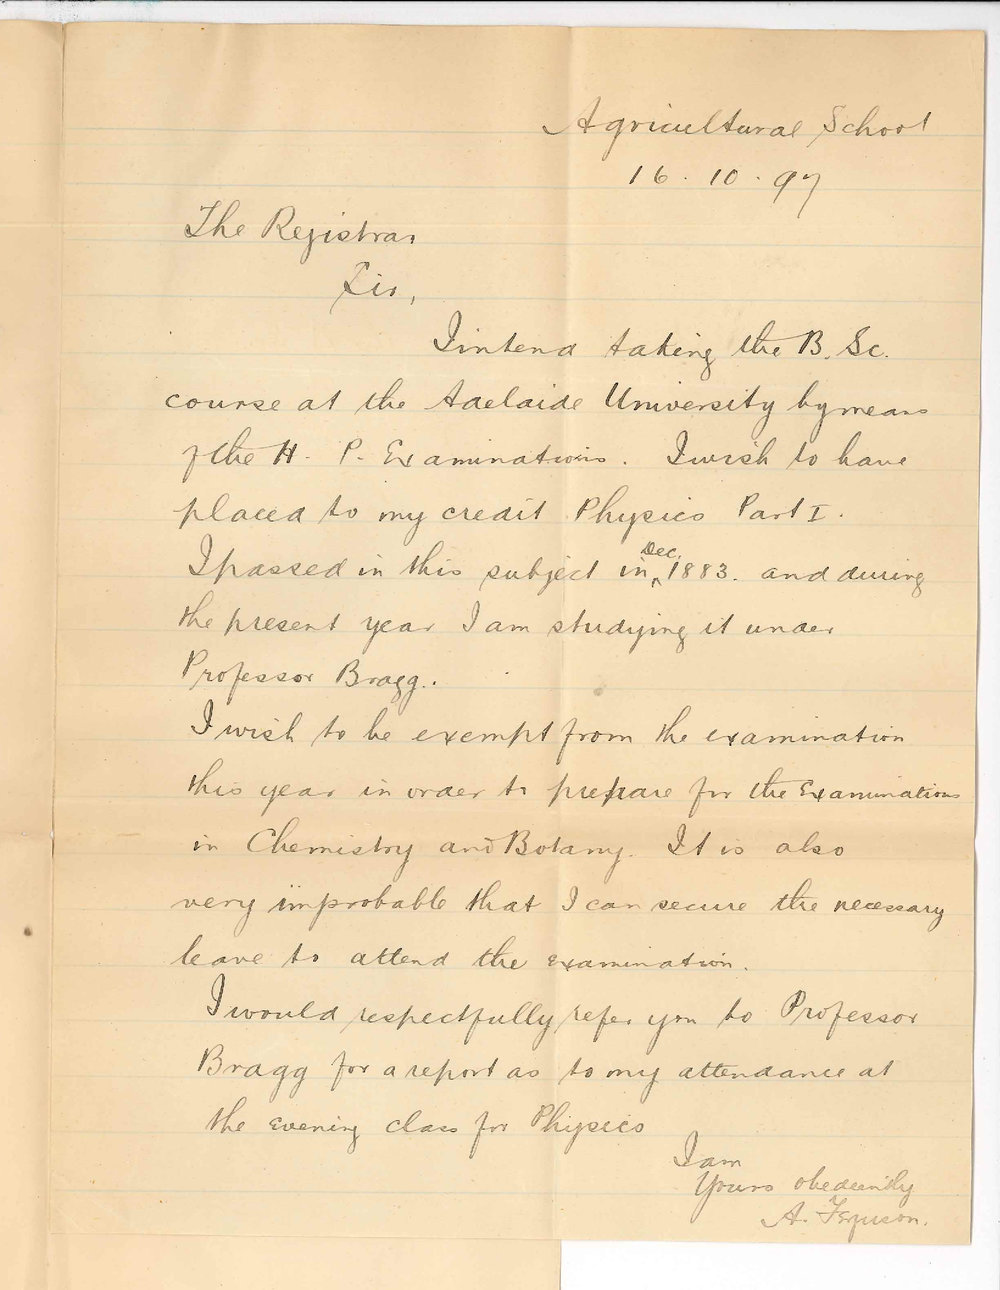 Agricultural School
16 . 10 . 97
The Registrar
Sir,
I intend taking the B. Sc.
course at the Adelaide University by means
of the H. P. Examinations. I wish to have
placed to my credit Physics Part I.
I passed in this subject in ^Dec. 1883. and during
the present year I am studying it under
Professor Bragg.
I wish to be exempt from the examination
this year in order to prepare for the Examinations
in Chemistry and Botany. It is also
very improbable that I can secure the necessary
leave to attend the examination.
I would respectfully refer you to Professor
Bragg for a report as to my attendance at
the evening class for Physics
I am
Yours obediently
A. Ferguson.